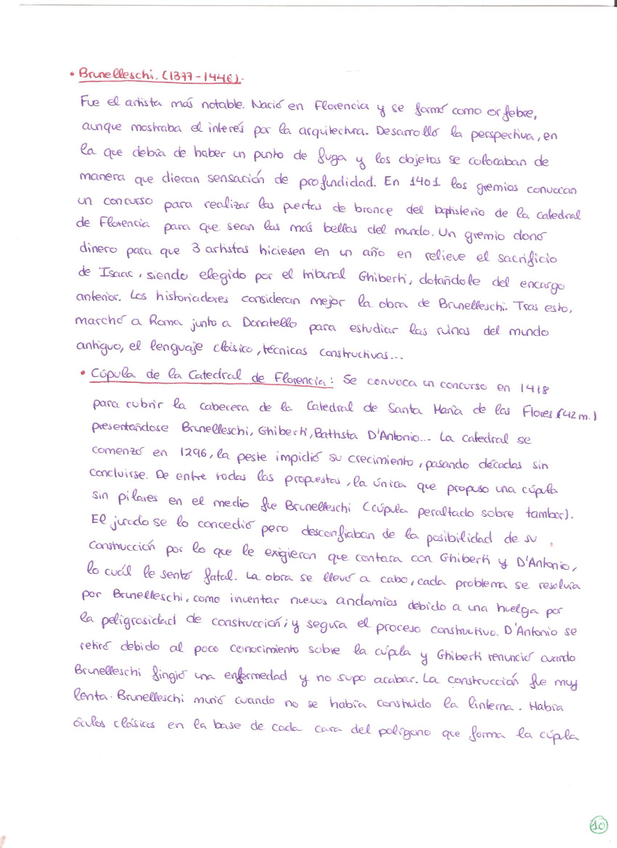 • Brunelleschi. (1377-1446).
Fue el artista más notable. Nació en Florencia y se formó como orfebre,
aunque mostraba el interés por la arquitectura. Desarrolló la perspectiva, en
la que debía de haber un punto de fuga y los objetos se colocaban de
manera que dieran sensación de profundidad. En 1401 los gremios convocan
un concurso para realizar las puertas de bronce del baptisterio de la catedral
de Florencia para que sean las más bellas del mundo. Un gremio donó
dinero para que 3 artistas hiciesen en un año en relieve el sacrificio
de Isaac, siendo elegido por el tribunal Ghiberti, dotándole del encargo
anterior. Los historiadores consideran mejor la obra de Brunelleschi. Tras esto,
marchó a Roma junto a Donatello para estudiar las ruinas del mundo
antiguo, el lenguaje clásico, técnicas constructivas...
• Cúpula de la Catedral de Florencia: Se convoca un concurso en 1418
para cubrir la cabecera de la Catedral de Santa María de las Flores (42 m.)
presentándose Brunelleschi, Ghiberti, Battista D'Antonio... La catedral se
comenzó en 1296, la peste impidió su crecimiento, pasando décadas sin
concluirse. De entre todas las propuestas, la única que propuso una cúpula
sin pilares en el medio fue Brunelleschi (cúpula peraltado sobre tambor).
El jurado se lo concedió pero desconfiaban de la posibilidad de su
construcción por lo que le exigieron que contara con Ghiberti y D'Antonio,
lo cuál le sentó fatal. La obra se llevó a cabo, cada problema se resolvía
por Brunelleschi, como inventar nuevos andamios debido a una huelga por
la peligrosidad de construcción; y seguía el proceso constructivo. D'Antonio se
retiró debido al poco conocimiento sobre la cúpla y Ghiberti renunció cuando
Brunelleschi fingió una enfermedad y no supo acabar. La construcción fue muy
lenta. Brunelleschi murió cuando no se había construido la linterna. Había
óculos clásicos en la base de cada cara del polígono que forma la cúpla
10